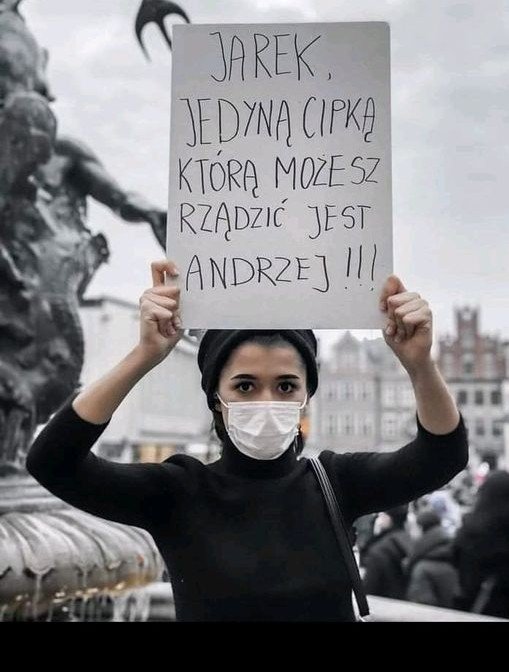 JAREK,
JEDYNĄ CIPKĄ
KTÓRĄ MOŻESZ
RZĄDZIĆ JEST
ANDRZEJ!!!